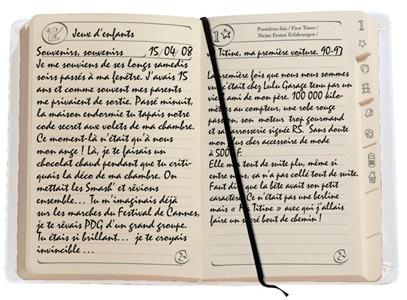 Jeux d'enfants
Souvenirs, souvenirs 15/04/08
Je me souviens de ses longs samedis
soirs passés à ma fenêtre. J'avais 15
ans et comme souvent mes parents
me privaient de sortie. Passé minuit,
la maison endormie tu tapais notre
code secret aux volets de ma chambre.
Ce moment-là n'était qu'à nous
mon ange ! Là, je te faisais un
chocolat chaud pendant que tu criti-
quais la déco de ma chambre. On
mettait les Smash' et rêvions
ensemble... Tu m'imaginais déjà
sur les marches du Festival de Cannes,
je te rêvais PDG d'un grand groupe.
Tu étais si brillant... je te croyais
invincible ...
1
Premières fois / First Times /
Meine Ersten Erfahrungen /
Titine, ma première voiture. 90-97
La première fois que nous nous sommes
vue c'était chez Lulu Garage tenu par un
vieil ami de mon père. 100 000 kilo-
mètres au compteur, une robe rouge
passion, son moteur trop gourmand
et sa carrosserie signée R5. Sans doute
mon plus cher accessoire de mode
à 5000 F.
Elle m'a tout de suite plu, même si
entre nous, ça n'a pas collé tout de suite.
Faut dire que la bête avait son petit
caractère. Ce n'était pas une berline
mais « Ma Titine » avec qui j'allais
faire un sacré bout de chemin !
1